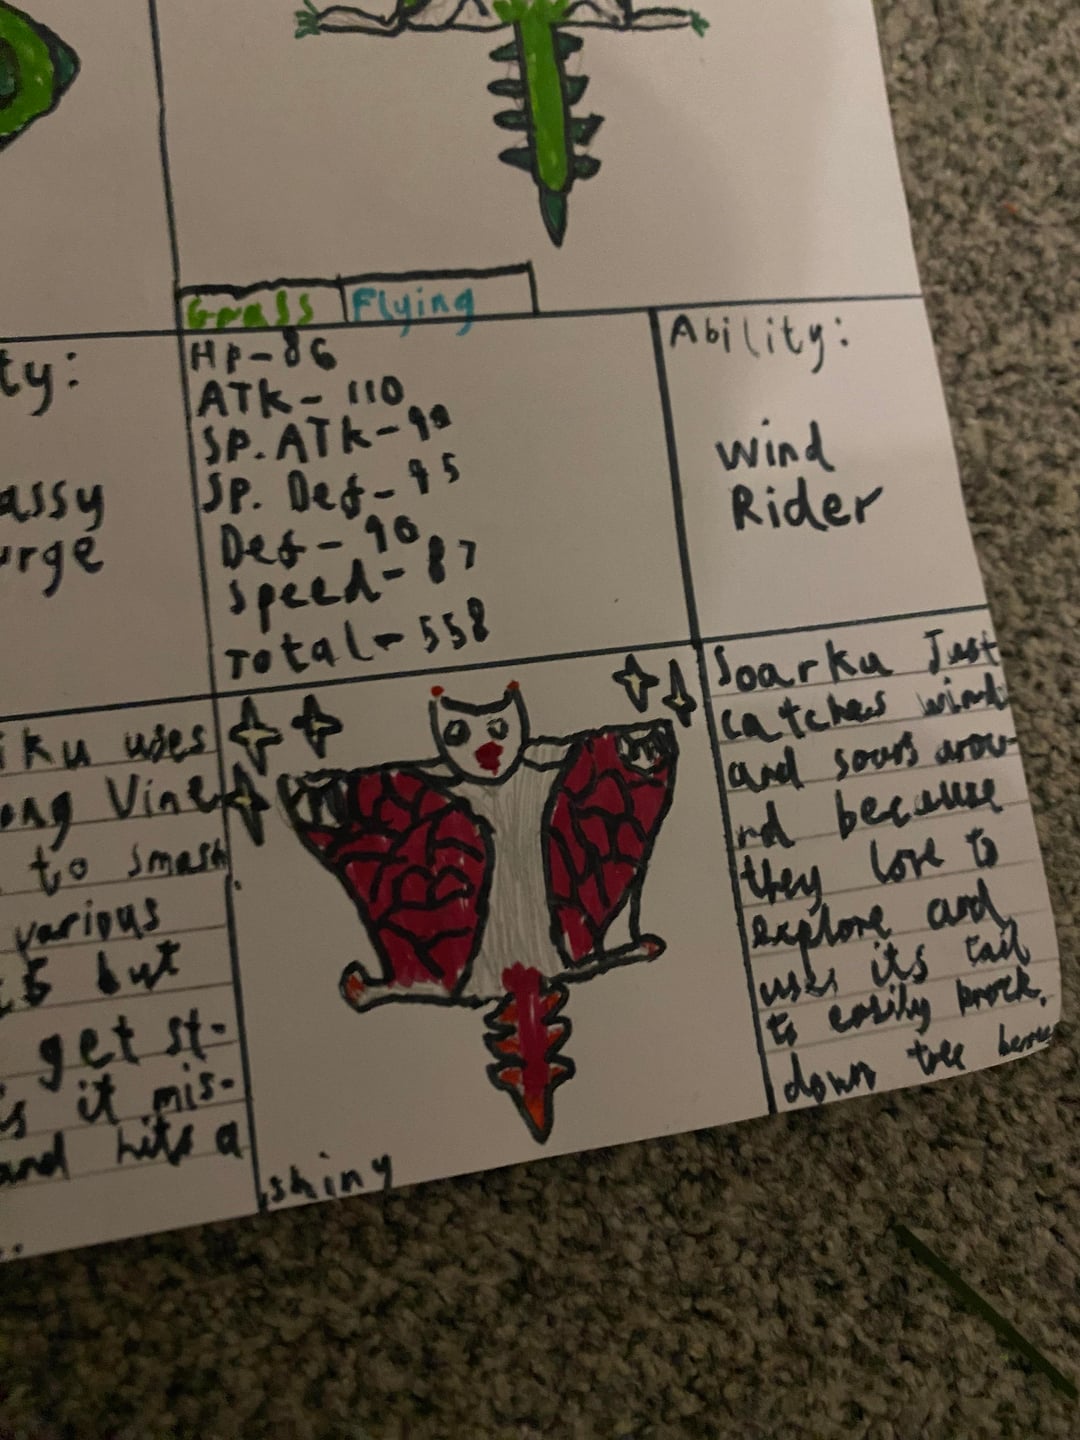 Grass Flying
ty:
assy
urge
Hp-86
ATK- 110
SP. ATK-90
SP. Def- 95
Def- 90
Speed- 87
Total- 558
Ability:
Wind
Rider
iku uses
ong Vine
to smash
various
but
get st-
it mis-
and hits a
shiny
Soarku Just
catches wind
and soars arou-
nd because
they love to
explore and
uses its tail
to easily knock
down tree berries